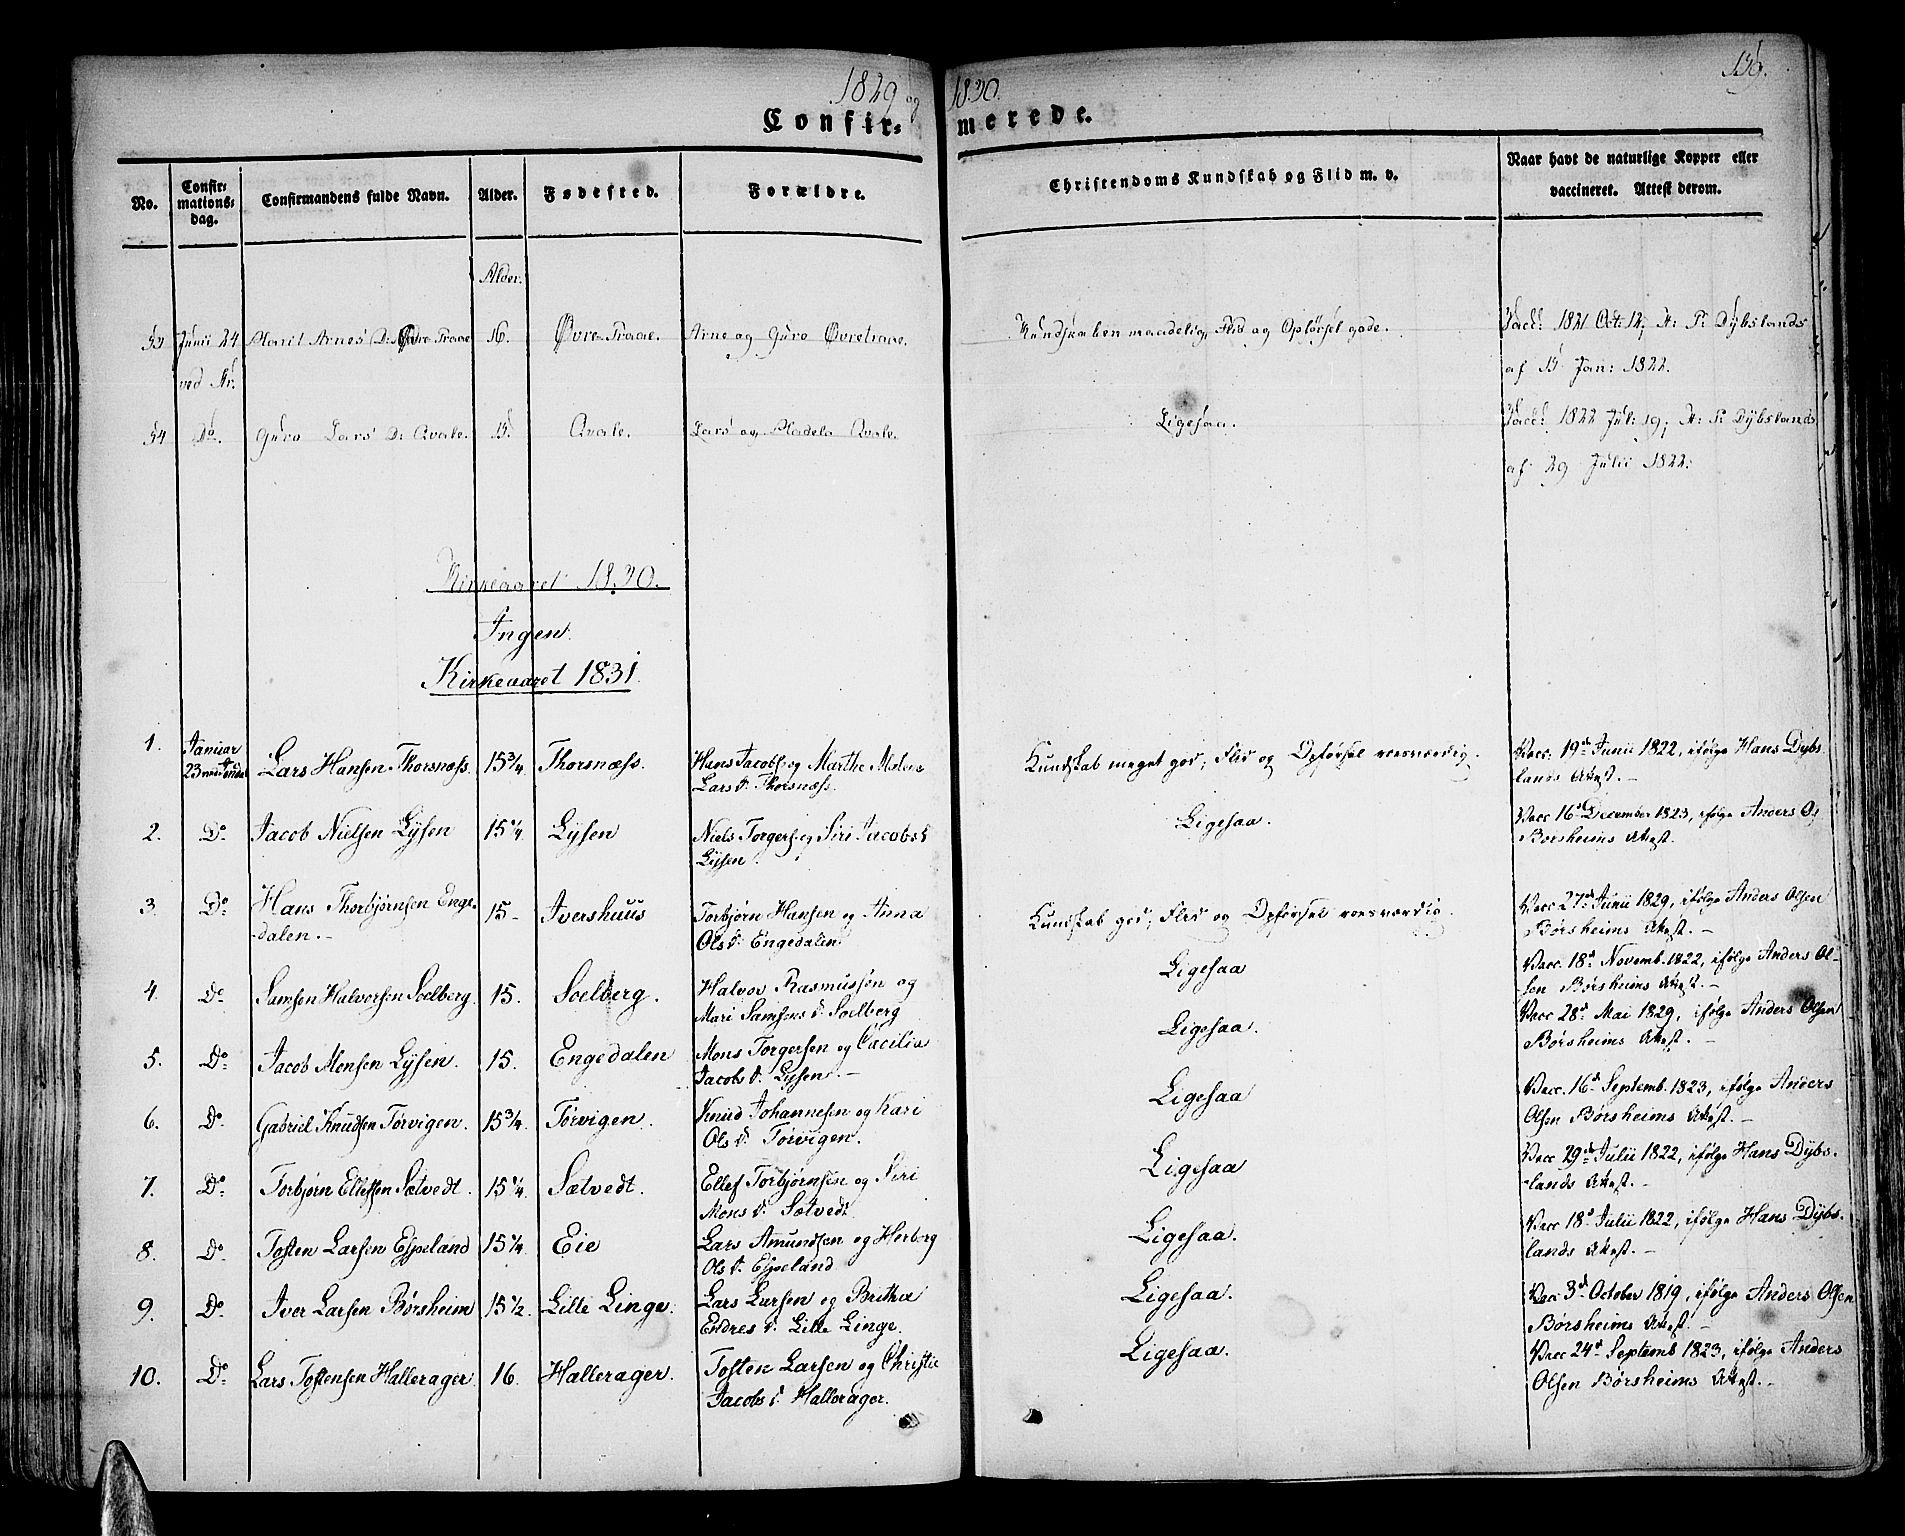 1829 og 1830.
159.
Confir- merede.
No. | Confir-mations-dag. | Confirmandens fulde Navn. | Alder. | Fødested. | Forældre. | Christendoms Kundskab og Flid m. v. | Naar havt de naturlige Kopper eller vaccineret. Attest derom.
Alder.
53 Junii 24 Marit Arnes D: Øvre Traae 16. Øvre Traae. Arne og Guro Øvretraae. Kundskaben maadelig, Flid og Opførsel gode. Vacc: 1821 Oct: 12, H: P: Dybslands
ved Hr. af 15 Jan: 1822.
54 Do. Guro Lars D: Qvale. 15. Qvale. Lars og Qvale. Ligesaa. Vacc: 1822 Jul: 19; H: P: Dybslands
af 29 Julii 1822:
Kirkeaaret 1830.
Ingen.
Kirkeaaret 1831.
1. Januar Lars Hansen Thorsnæss. 15 3/4 Thorsnæss. Hans Jacobs. og Marthe Malene Kundskab meget god; Flid og Opførsel roesværdig. Vacc. 19d Junii 1822, ifølge Hans Dybs
23 Lars D. Thorsnæss. lands Attest. -
2. Do. Jacob Nielsen Lysen 15 1/4 Lysen Niels Torgers. og Siri Jacobs D Ligesaa. Vacc 16d December 1823, ifølge Anders Ol
Lysen. Børsheims Attest.
3. Do. Hans Thorbjørnsen Enge- 15 - Ivershuus Torbjørn Hansen og Anna Kundskab god; Flid og Opførsel roesværdig. Vacc 27de Junii 1829, ifølge Anders Olsen
-dalen. - Ols D. Engedalen Børsheims Attest. -
4. Do. Samsen Halvorsen Soelberg. 15. Soelberg. Halvor Rasmussøn og Ligesaa Vacc. 18d Novemb. 1822, ifølge Anders Ol-
Mari Samsens D Soelberg sen Børsheims Attest. -
5. Do. Jacob Monsen Lysen. 15. Engedalen Mons Torgersen og Cæcilia Ligesaa. Vacc 28d Mai 1829, ifølge Anders Olsen
Jacobs D. Lysen. - Børsheims Attest. -
6. Do. Gabriel Knudsen Tørvigen. 15 3/4 Tørvigen. Knud Johannesen og Kari Ligesaa Vacc. 16d Septemb. 1823, ifølge Anders
Ols D. Tørvigen. Olsen Børsheims Attest. -
7. Do. Torbjørn Ellefsen Sætvedt. 15 1/4 Sætvedt. Ellef Torbjørnsen og Siri Ligesaa Vacc 29de Julii 1822, ifølge Hans Dybs-
Mons D. Sætvedt -lands Attest. -
8. Do. Tosten Larsen Espeland 15 1/4. Eie Lars Amundsen og Herborg Ligesaa. Vacc 18d Julii 1822, ifølge Hans Dybs-
Ols D. Espeland lands Attest. -
9. Do. Iver Larsen Børsheim 15 1/2. Lille Linge. Lars Larsen og Britha Ligesaa. Vacc 3d October 1819, ifølge Anders Olsen
Endres D. Lille Linge. Børsheims Attest. -
10. Do. Lars Tostensen Hallerager. 16. Hallerager. Tosten Larsen og Christie Ligesaa. Vacc 24d Septemb 1823, ifølge Anders
Jacobs D Hallerager. Olsen Børsheims Attest. -